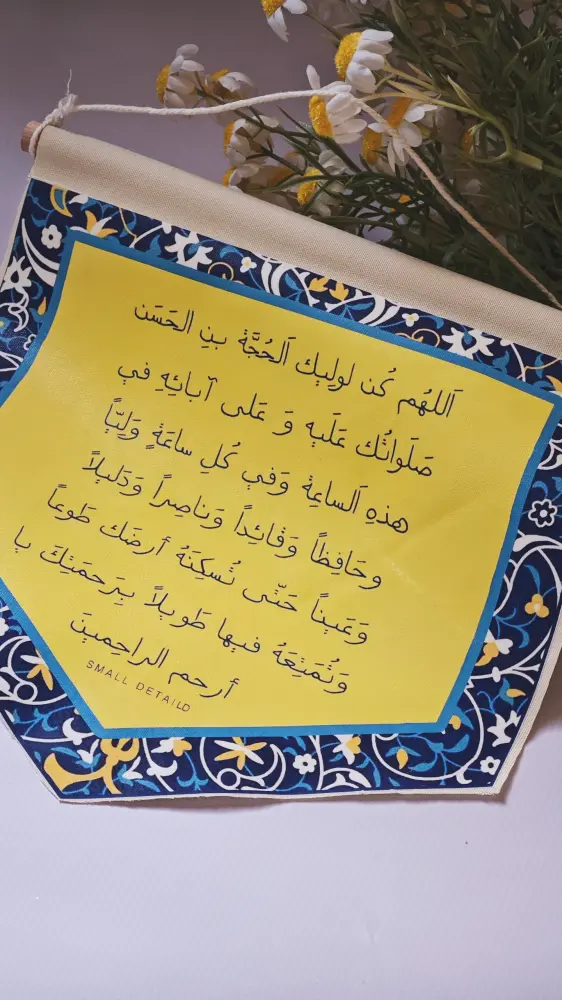 اَللهُم كُن لوليك اَلحُجَّة بنِ الحَسَن
صَلَواتُك عَلَيه وَ عَلى آبائِهِ في
هذهِ اَلساعِة وَفي كُلِ ساعَةٍ وَليّاً
وحَافِظاً وَقائِداً وَناصِراً وَدَليلاً
وَعَيناً حَتّى تُسكِنَهُ أرضَك طَوعاً
وَتُمَتِعَهُ فيها طَويلاً بِرَحمَتِكَ يا
أرحم الراحِمينَ
SMALL DETAILD